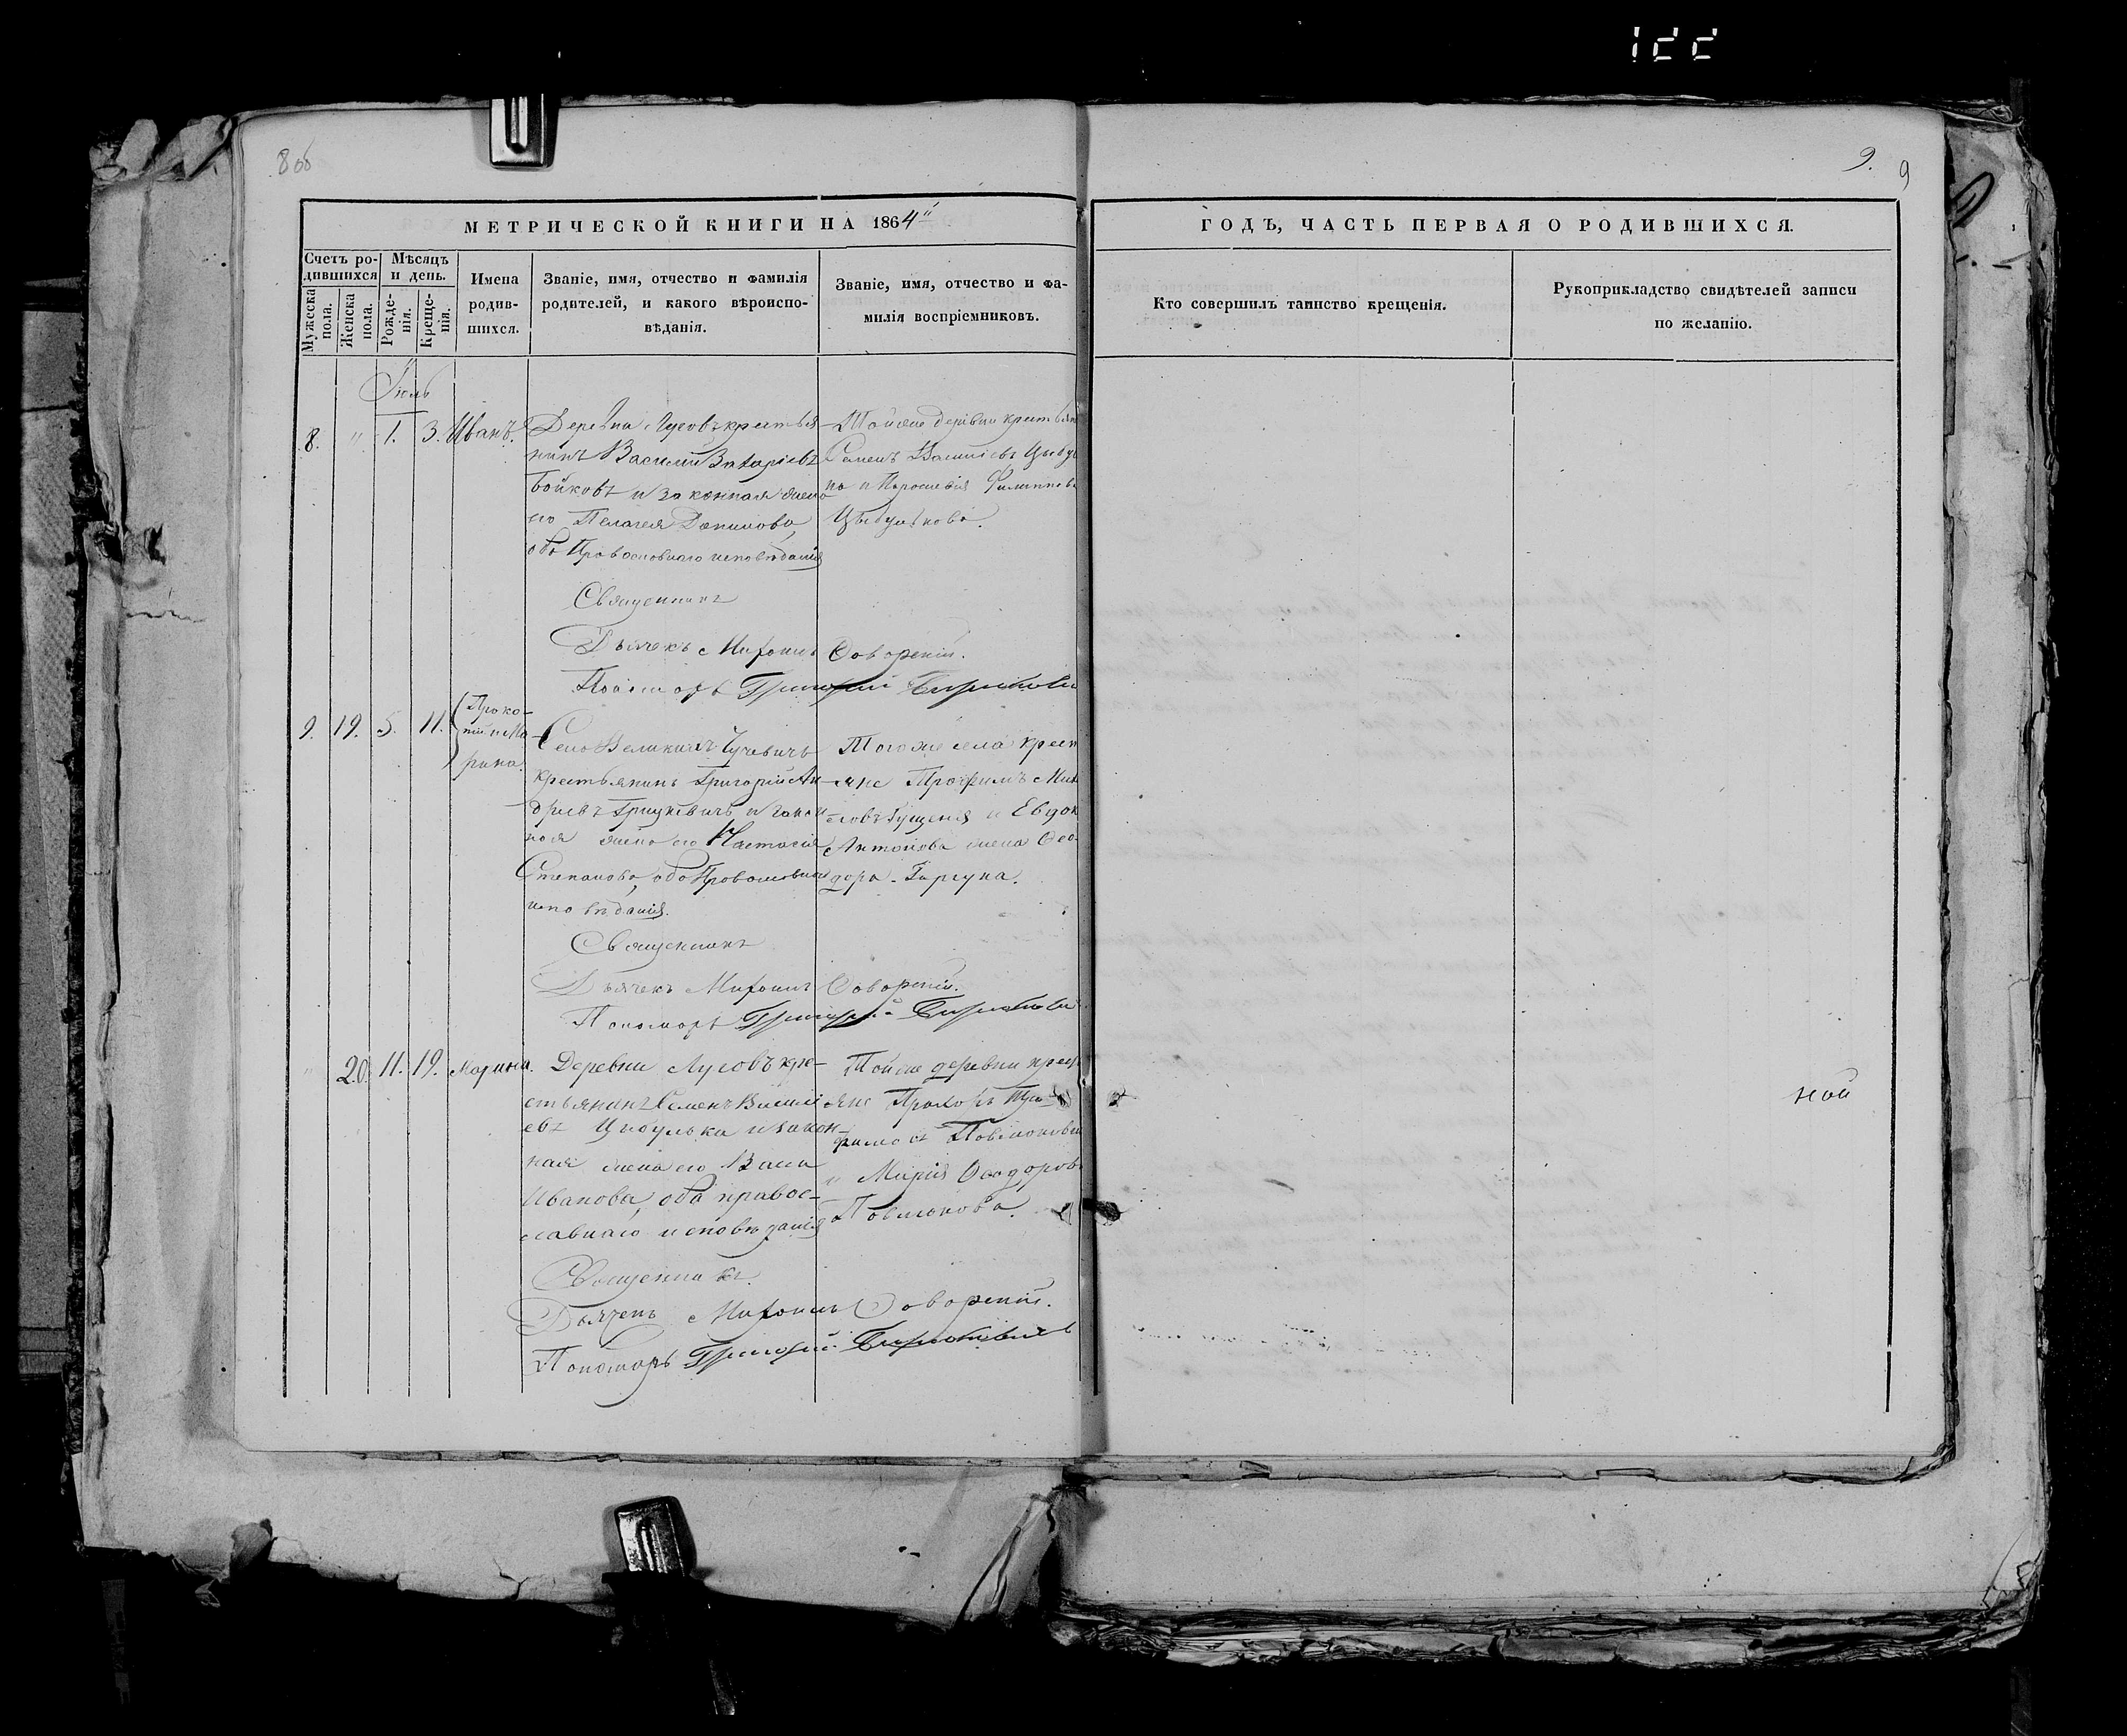 122
8 об
9.
9
МЕТРИЧЕСКОЙ КНИГИ НА 1864й
ГОДЪ, ЧАСТЬ ПЕРВАЯ О РОДИВШИХСЯ.
Счетъ родившихся
Мужеска пола.
Женска пола.
Мѣсяцъ и день.
Рожденія.
Крещенія.
Имена родившихся.
Званіе, имя, отчество и фамилія
родителей, и какого вѣроиспо-
вѣданія.
Званіе, имя, отчество и фа-
милія воспріемниковъ.
Кто совершилъ таинство крещенія.
Рукоприкладство свидѣтелей записи
по желанію.
Іюль
8. " 1. 3. Иванъ.
Деревни Лусовъ крестья-
нинъ Василій Захаріевъ
Бойковъ и законная жена
его Пелагея Данилова,
оба Православнаго исповѣданія
Тойже деревни крестьяне
Семенъ Василіевъ
и Филиппова
Цыбулькова.
Священникъ
Дьячекъ Миронъ Говорскій.
Пономарь Григорій
9. 19. 5. 11. Проко-
пій и Ма-
рина.
Села Великихъ Чучевичъ
крестьянинъ Григорій Ан-
дреевъ Грицкевичъ и закон
ная жена его Настасія
Степанова, оба Православнаго
исповѣданія.
Тогоже села крест
яне Трофимъ Мих
Гущеня и Евдок
Антонова жена Ѳео-
дора
Священникъ
Дьячекъ Миронъ Говорскій.
Пономарь Григорій
" 20. 11. 19. Марина.
Деревни Лусовъ кре-
стьянинъ Семенъ Василі
евъ Цыбулька и закон-
ная жена его Васса
Иванова, оба правос-
лавнаго исповѣданія
Тойже деревни крест
яне Прохоръ
и Марія Ѳеодоров
Священникъ.
Дьячекъ Миронъ Говорскій.
Пономарь Григорій
ной